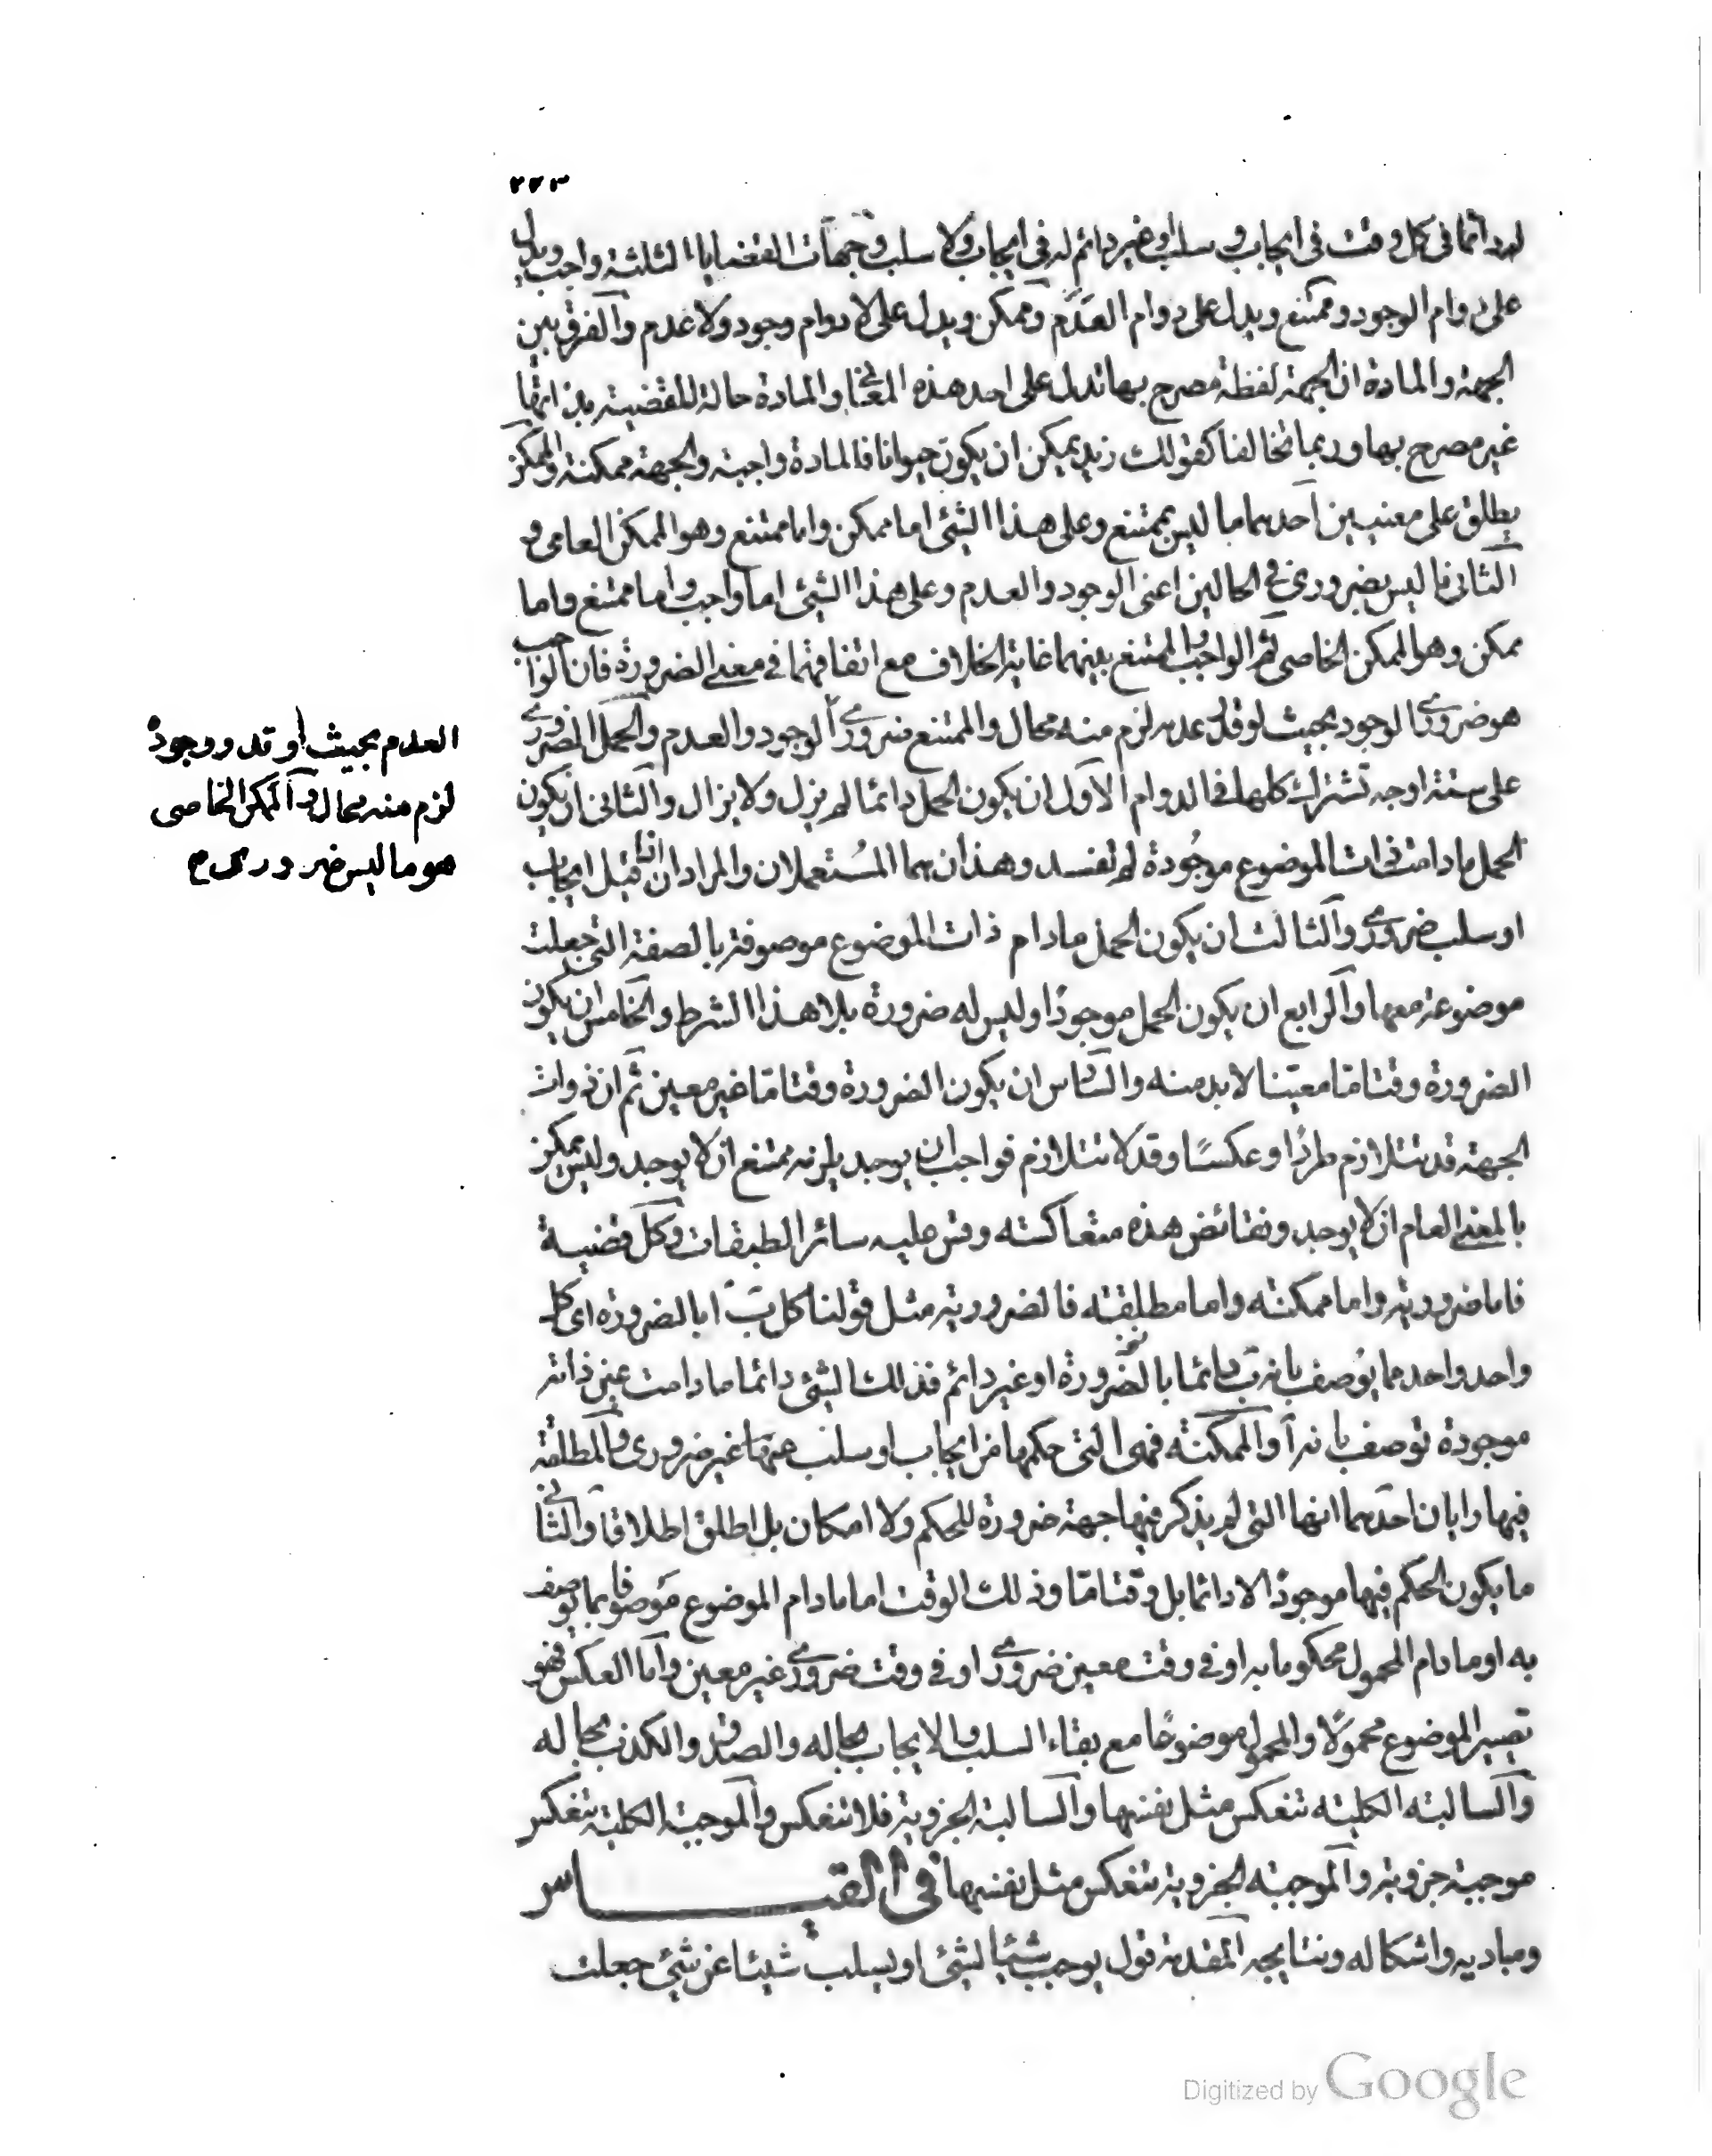 ٢٢٣
له دائما فى كل وقت فى ايجاب و سلب او غير دائم له فى ايجاب ولا سلب وجهات القضايا الثلثة واجب ويدل
على دوام الوجود وممتنع ويدل على دوام العدم وممكن ويدل على لا دوام وجود ولا عدم والفرق بين
الجهة والمادة ان الجهة لفظة مصرح بها تدل على احد هذه المعانى والمادة حالة للقضية بذاتها
غير مصرح بها وربما تخالفا كقولك زيد يمكن ان يكون حيوانا فالمادة واجبة والجهة ممكنة والممكن
يطلق على معنيين احدهما ما ليس بممتنع وعلى هذا الشئ اما ممكن واما ممتنع وهو الممكن العامى و
الثانى ما ليس بضرورى فى الحالين اعنى الوجود والعدم وعلى هذا الشئ اما واجب واما ممتنع واما
ممكن وهو الممكن الخاصى ثم الواجب والممتنع بينهما غاية الخلاف مع اتفاقهما فى معنى الضرورة فان الواجب
هو ضرورى الوجود بحيث لو قدر عدمه لزم منه محال والممتنع ضرورى الوجود والعدم والحمل الضرورى
على ستة اوجه تشترك كلها فى الدوام الاول ان يكون الحمل دائما لم يزل ولا يزال والثانى ان يكون
الحمل ما دامت ذات الموضوع موجودة لم تفسد وهذان هما المستعملان والمرادان اذا قيل ايجاب
او سلب ضرورى والثالث ان يكون الحمل ما دام ذات الموضوع موصوفة بالصفة التى جعلت
موضوعة معها والرابع ان يكون الحمل موجودا وليس له ضرورة بلا هذا الشرط والخامس ان يكون
الضرورة وقتا ما معينا لا بد منه والسادس ان يكون الضرورة وقتا ما غير معين ثم ان ذوات
الجهة قد تتلازم طردا وعكسا وقد لا تتلازم فواجب ان يوجد يلزمه ممتنع ان لا يوجد وليس يمكن
بالمعنى العام ان لا يوجد ونقائض هذه متعاكسته وقس عليه سائر الطبقات وكل قضية
فاما ضرورية واما ممكنة واما مطلقة فالضرورية مثل قولنا كل ب ا بالضرورة اى كل
واحد واحد مما يوصف بانه ب دائما بالضرورة او غير دائم فذلك الشئ دائما ما دامت عين ذاته
موجودة توصف بانه ا والممكنة فهى التى حكمها من ايجاب او سلب غير ضرورى والمطلقة
فيها رايان احدهما انها التى لم يذكر فيها جهة ضرورة للحكم ولا امكان بل اطلق اطلاقا والثانى
ما يكون الحكم فيها موجودا لا دائما بل وقتا ما وذلك الوقت اما ما دام الموضوع موصوفا بما يوصف
به او ما دام المحمول محكوما به او فى وقت معين ضرورى او فى وقت ضرورى غير معين واما العكس فهو
تصيير الموضوع محمولا والمحمول موضوعا مع بقاء السلب والايجاب بحاله والصدق والكذب بحاله
والسالبة الكلية تنعكس مثل نفسها والسالبة الجزوية فلا تنعكس والموجبة الكلية تنعكس
موجبة جزوية والموجبة الجزوية تنعكس مثل نفسها فى القياس
ومباديه واشكاله ونتايجه المقدمة قول يوجب شيئا لشئ او يسلب شيئا عن شئ جعلت
العدم بحيث لو قدر وجوده
لزم منه محال والممكن الخاصى
هو ما ليس ضرورى
Digitized by Google